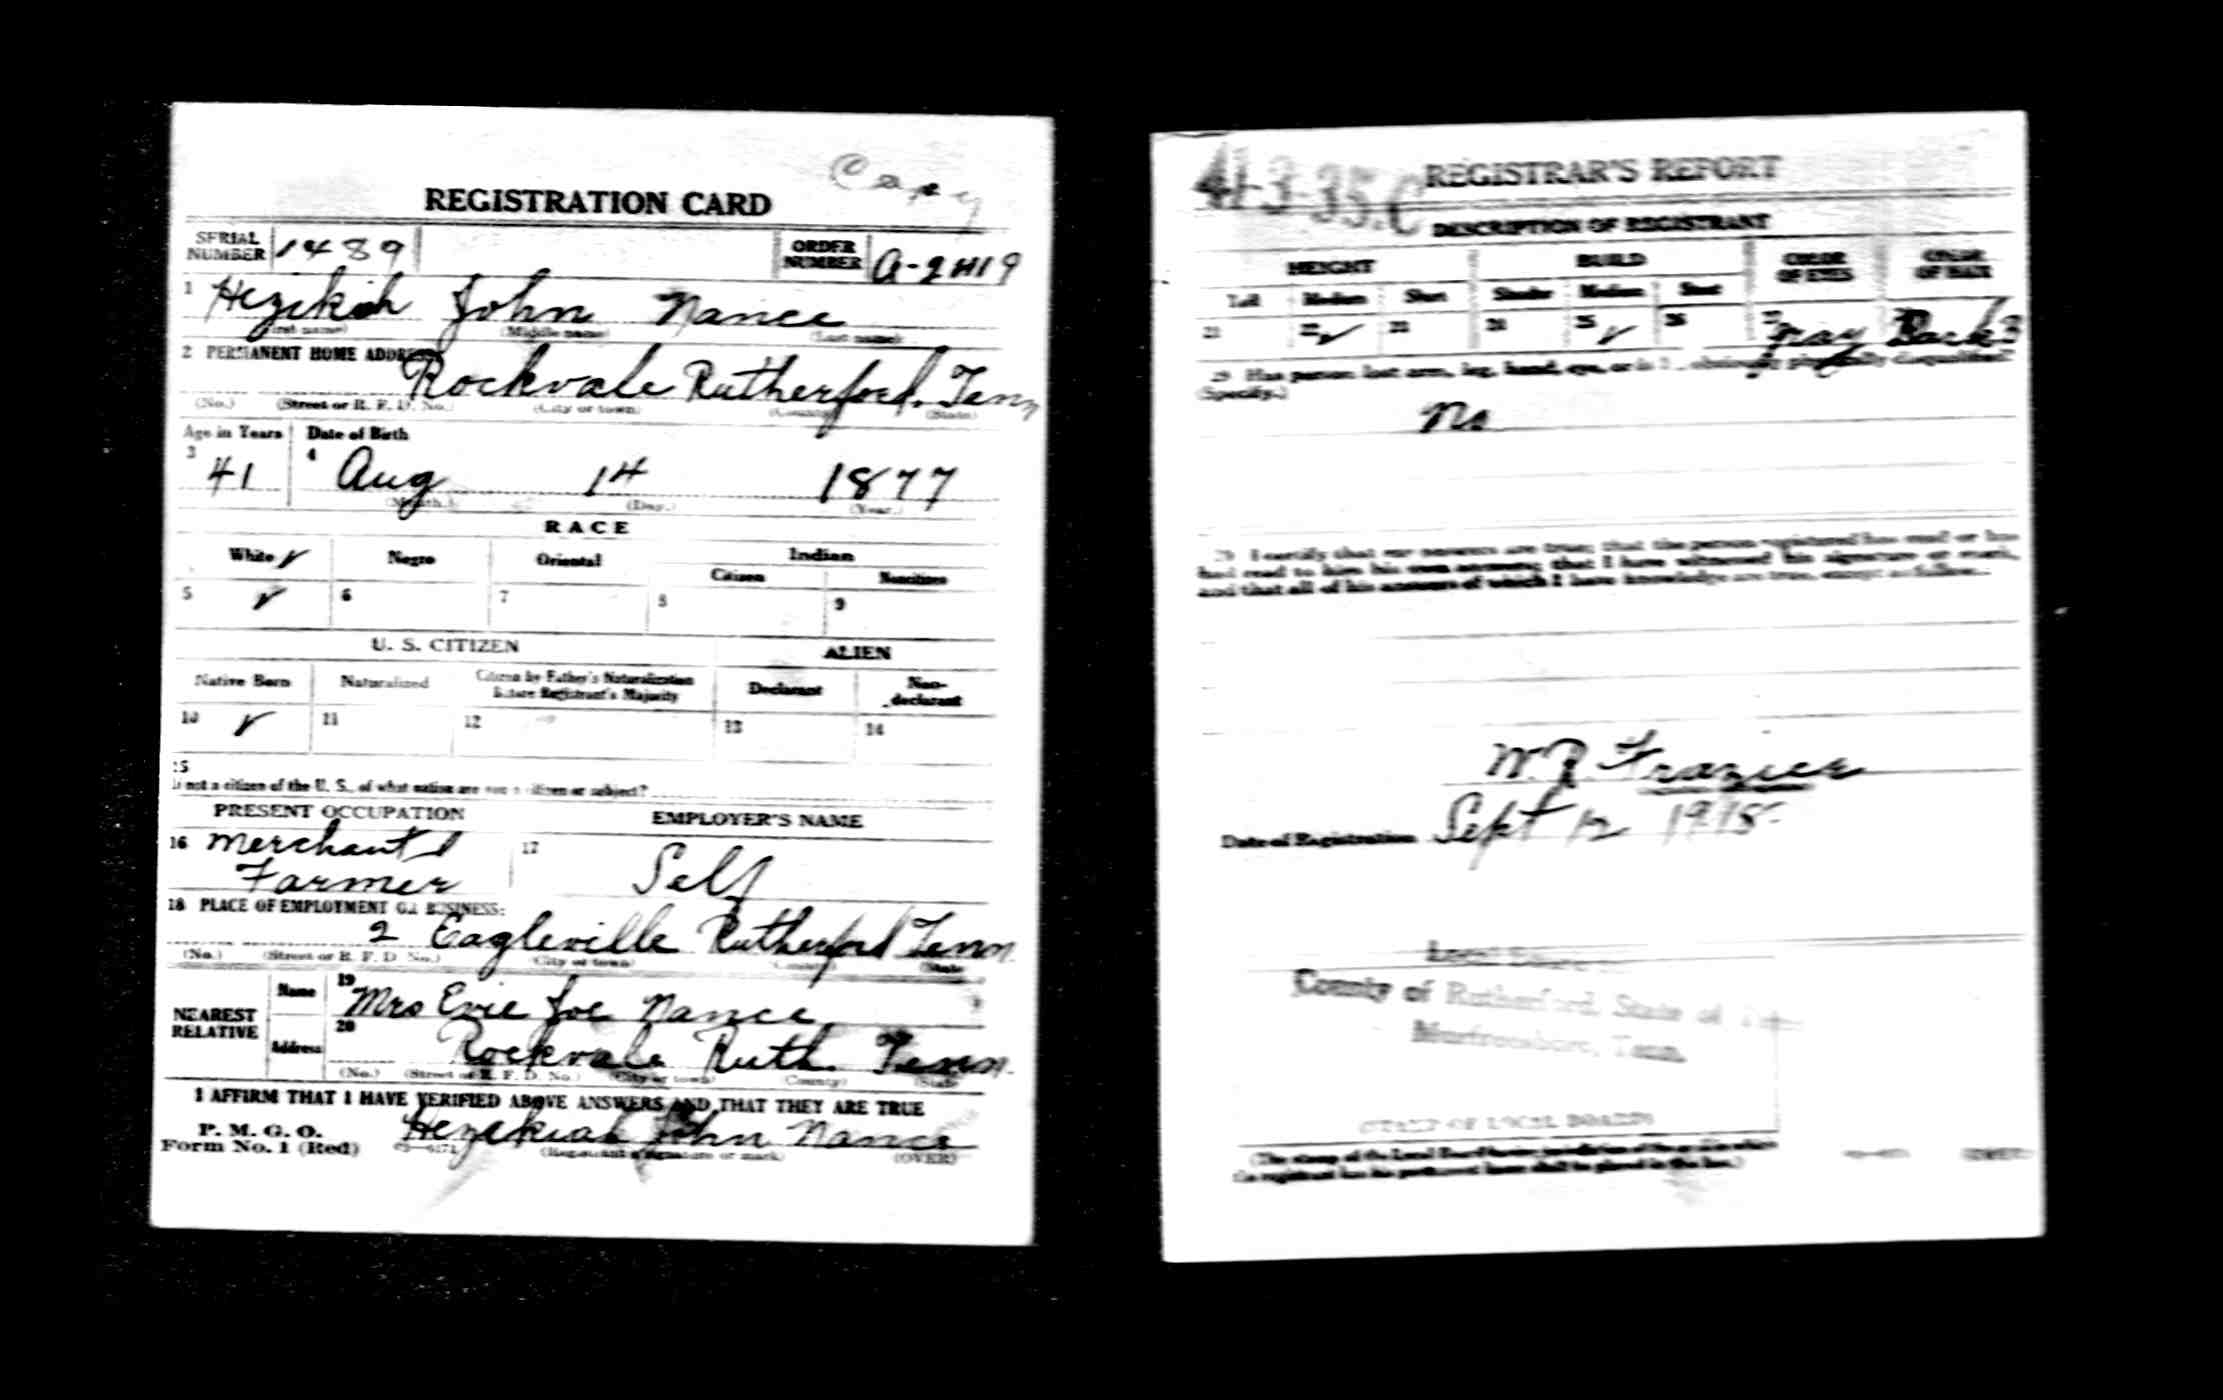 Copy
REGISTRATION CARD
SERIAL NUMBER 1489 ORDER NUMBER A-2419
1 Hezikiah John Nance
(First name) (Middle name) (Last name)
2 PERMANENT HOME ADDRESS
Rockvale Rutherford. Tenn
(No.) (Street or R. F. D. No.) (City or town) (County) (State)
Age in Years Date of Birth
3 41 4 Aug 14 1877
(Month.) (Day.) (Year.)
RACE
White Negro Oriental Indian
Citizen Noncitizen
5 ✓ 6 7 8 9
U. S. CITIZEN ALIEN
Native Born Naturalized Citizen by Father's Naturalization Before Registrant's Majority Declarant Non-declarant
10 ✓ 11 12 13 14
15
If not a citizen of the U. S., of what nation are you a citizen or subject?
PRESENT OCCUPATION EMPLOYER'S NAME
16 Merchant & 17 Self
Farmer
18 PLACE OF EMPLOYMENT OR BUSINESS:
2 Eagleville Rutherford Tenn
(No.) (Street or R. F. D. No.) (City or town) (County) (State)
NEAREST RELATIVE Name 19 Mrs Evie Joe Nance
Address 20 Rockvale Ruth. Tenn.
(No.) (Street or R. F. D. No.) (City or town) (County) (State)
I AFFIRM THAT I HAVE VERIFIED ABOVE ANSWERS AND THAT THEY ARE TRUE
P. M. G. O.
Form No. 1 (Red) Hezekiah John Nance
(Registrant's signature or mark) (OVER)
41-3-35.C REGISTRAR'S REPORT
DESCRIPTION OF REGISTRANT
HEIGHT BUILD COLOR OF EYES COLOR OF HAIR
Tall Medium Short Slender Medium Stout
21 22 ✓ 23 24 25 ✓ 26 27 Gray
29 Has person lost arm, leg, hand, eye, or is he obviously physically disqualified?
(Specify.)
No
30 I certify that my answers are true; that the person registered has read or has
had read to him his own answers; that I have witnessed his signature or mark,
and that all of his answers of which I have knowledge are true, except as follows:
W. R. Frazier
Date of Registration Sept 12 1918
Local Board
County of Rutherford, State of Tenn
Murfreesboro, Tenn.
(STAMP OF LOCAL BOARD)
(The stamp of the Local Board having jurisdiction of the area in which
the registrant has his permanent home shall be placed in this box.)